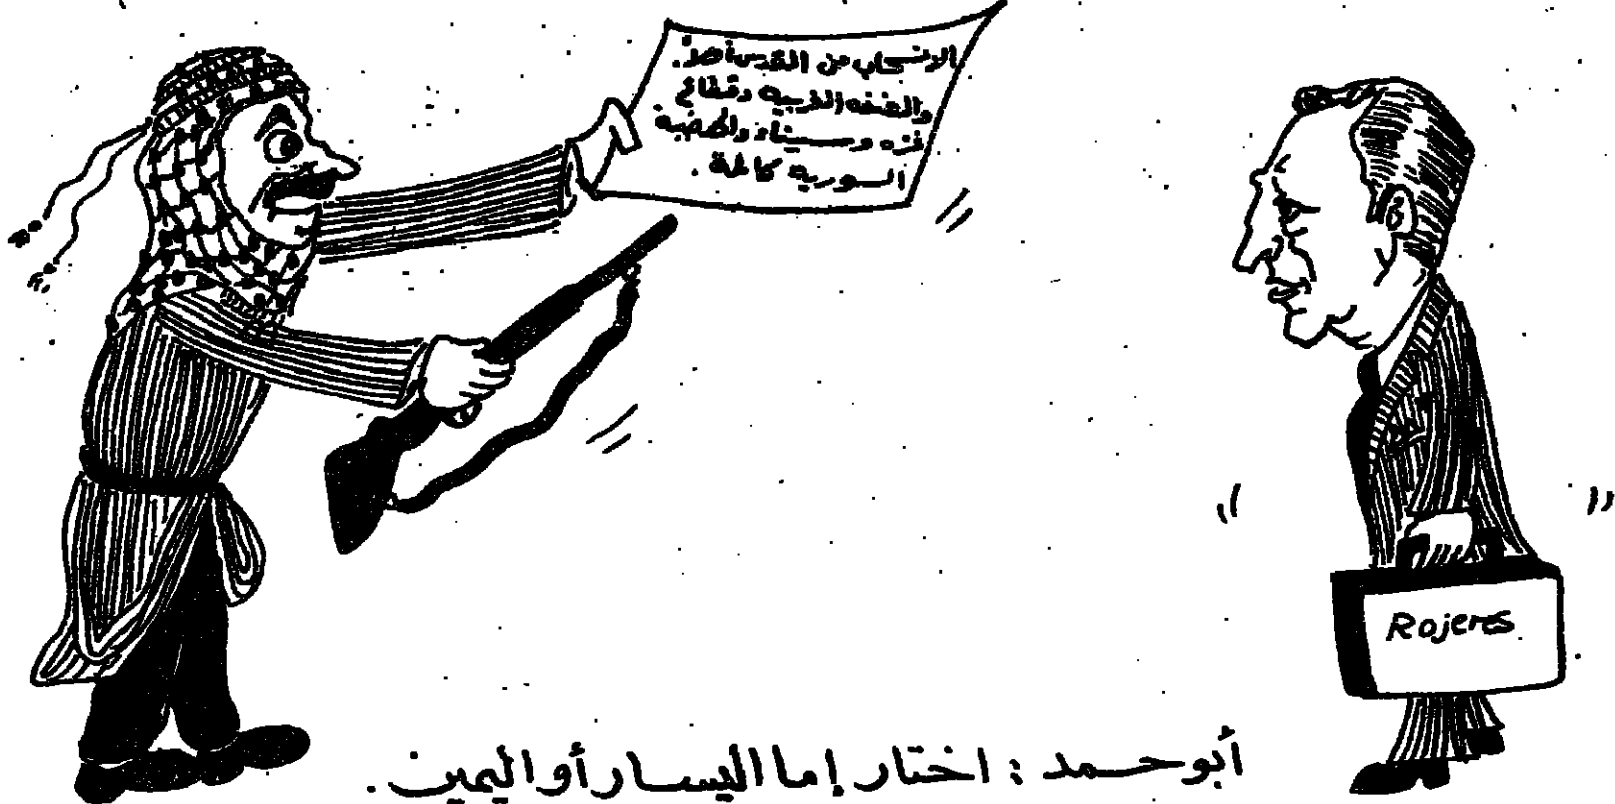 الانسحاب من القدس أولاً.
والضفه الغربيه وقطاع
غزه وسيناء والهضبه
السوريه كاملة.
Rojeres
أبو حمد : اختار إما اليسار أو اليمين.